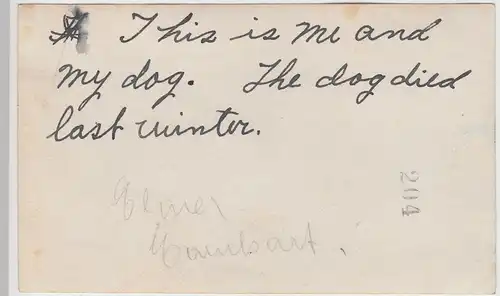 This is me and
my dog. The dog died
last winter.
Elmer
204